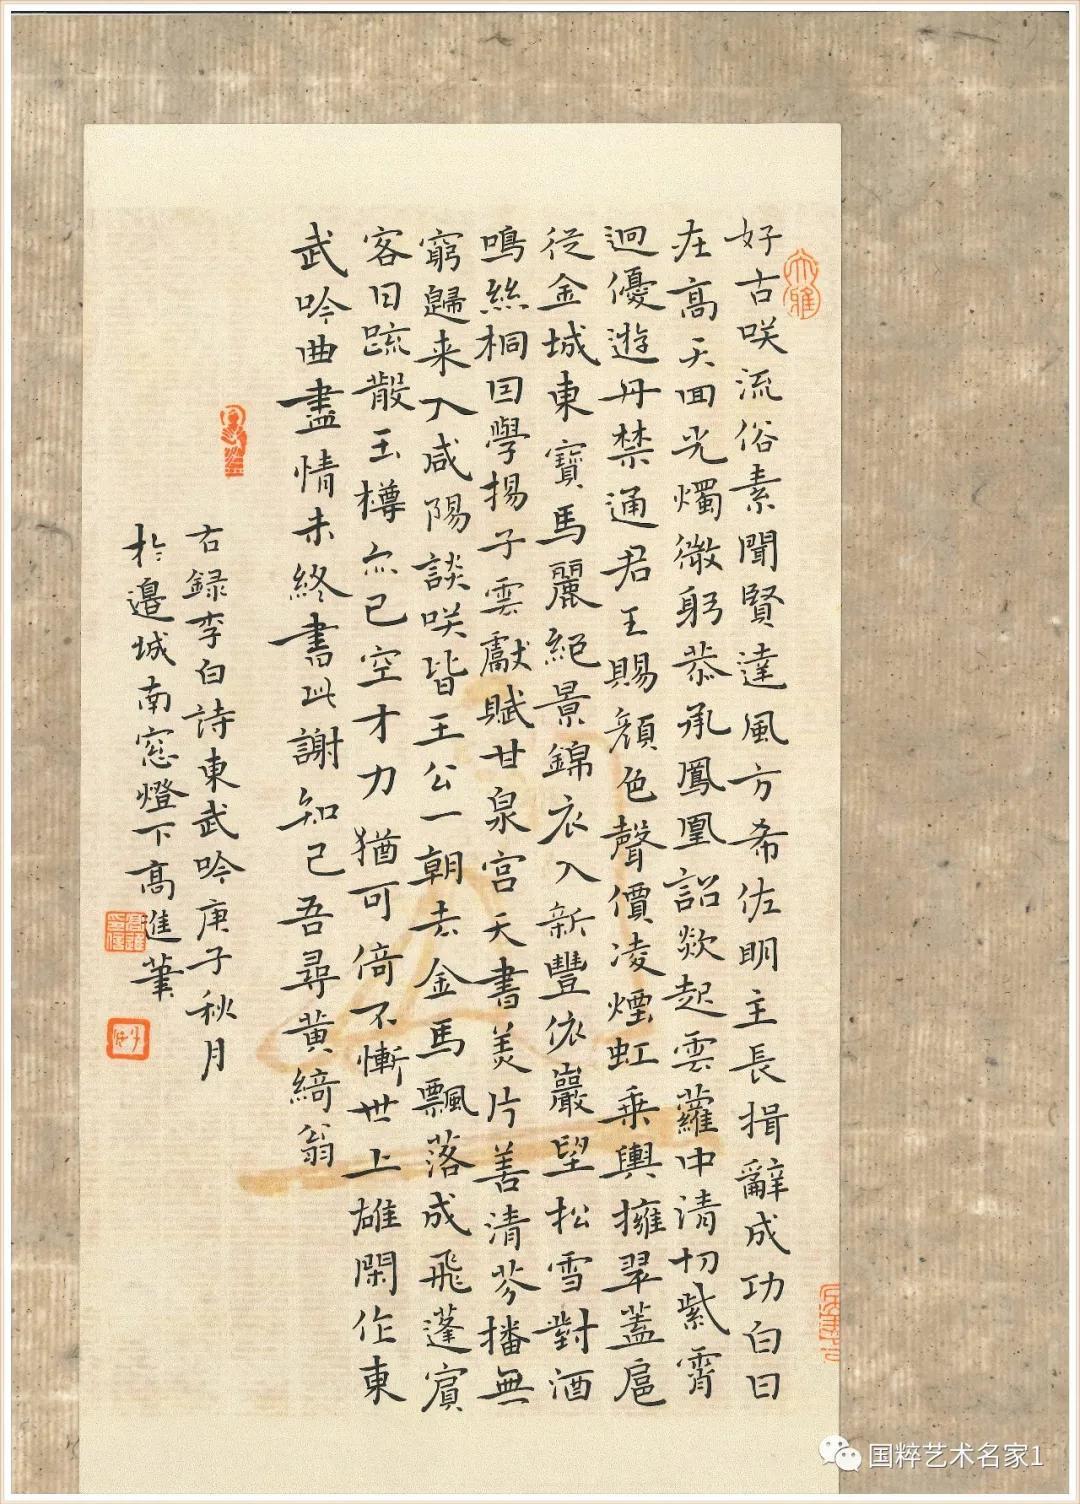 好古咲流俗素聞賢達風方希佐明主長揖辭成功白日
在高天回光燭微躬恭承鳳凰詔欻起雲蘿中清切紫霄
迥優遊丹禁通君王賜顏色聲價凌煙虹乘輿擁翠蓋扈
從金城東寶馬麗絕景錦衣入新豐依巖望松雪對酒
鳴絲桐因學揚子雲獻賦甘泉宮天書美片善清芬播無
窮歸来入咸陽談咲皆王公一朝去金馬飄落成飛蓬賓
客日疏散玉樽亦已空才力猶可倚不慚世上雄閑作東
武吟曲盡情未終書此謝知己吾尋黄綺翁
右録李白詩東武吟庚子秋月
於邊城南窓燈下高進筆
大雅
国粹艺术名家1